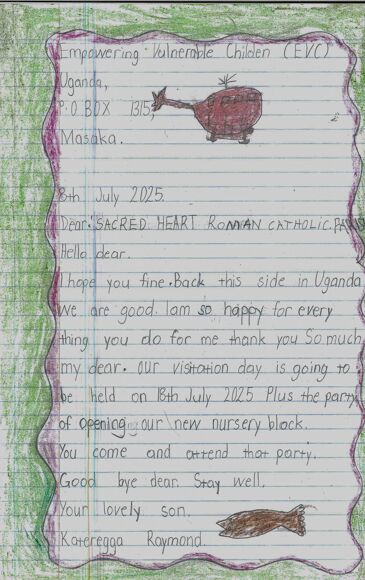 Empowering Vulnerable Childen (EVC)
Uganda,
P.O BOX 1315,
Masaka.
8th July 2025.
Dear. SACRED HEART ROMAN CATHOLIC.
Hello dear.
I hope you fine. Back this side in Uganda
we are good. I am so happy for every
thing you do for me thank you So much
my dear. our visitation day is going to
be held on 18th July 2025 Plus the party
of opening our new nursery block.
You come and attend that party.
Good bye dear. Stay well.
Your lovely son.
Kateregga Raymond.